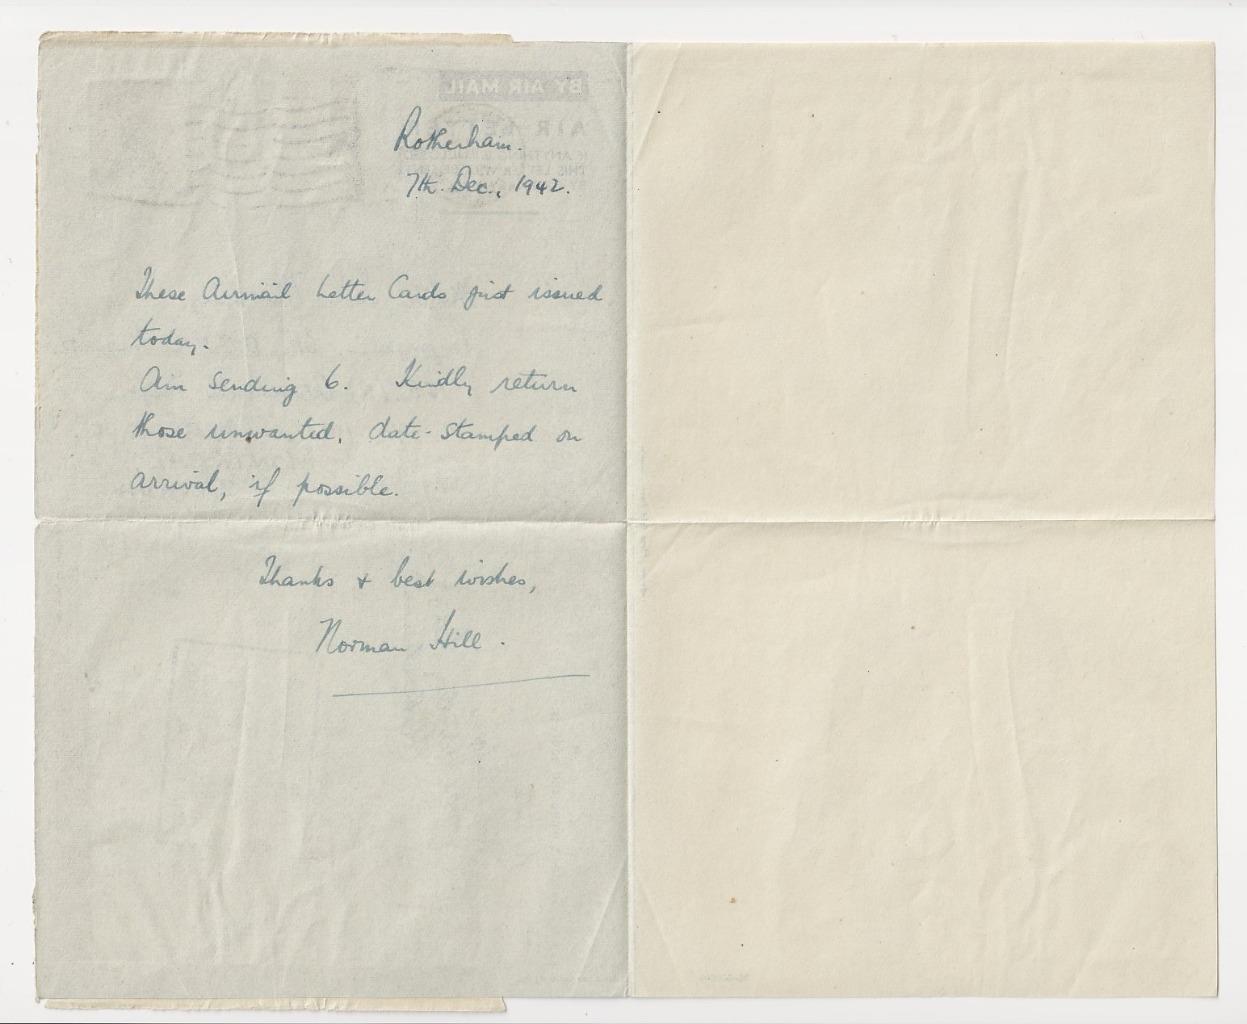 BY AIR MAIL
AIR
Rotherham.
7th. Dec., 1942.
These Airmail Letter Cards just issued
today.
Am sending 6. Kindly return
those unwanted, date-stamped on
arrival, if possible.
Thanks & best wishes,
Norman Hill.